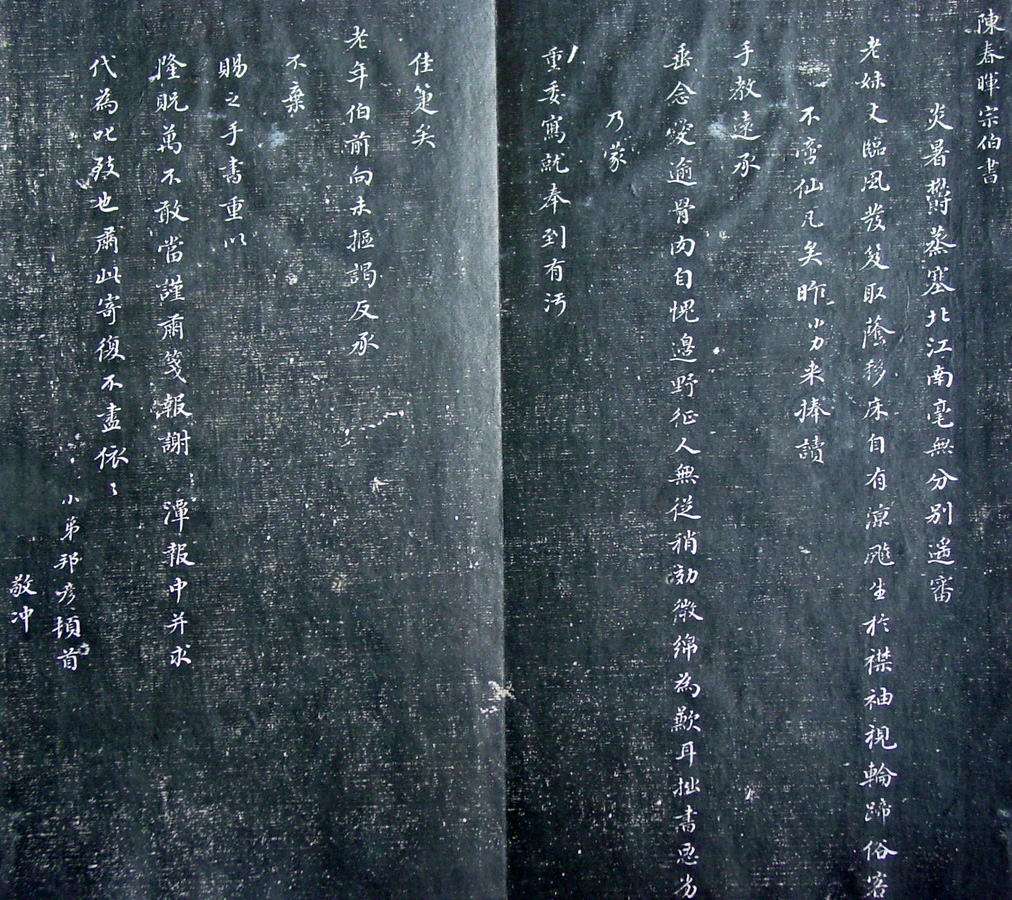 陳春暉宗伯書
炎暑欝蒸塞北江南毫無分別遥審
老妹丈臨風發笈取蔭移床自有涼颸生於襟袖視輪蹄俗客
不啻仙凡矣昨小力来捧讀
手教遠承
垂念愛逾骨肉自愧邊野征人無從稍効微綿為歉耳拙書惡劣
乃蒙
重委寫就奉到有汚
佳箑矣
老年伯前向未摳謁反承
不棄
賜之手書重以
隆貺萬不敢當謹肅箋報謝 潭報中并求
代為叱致也肅此寄復不盡依〻
小弟邦彦頓首
敬冲